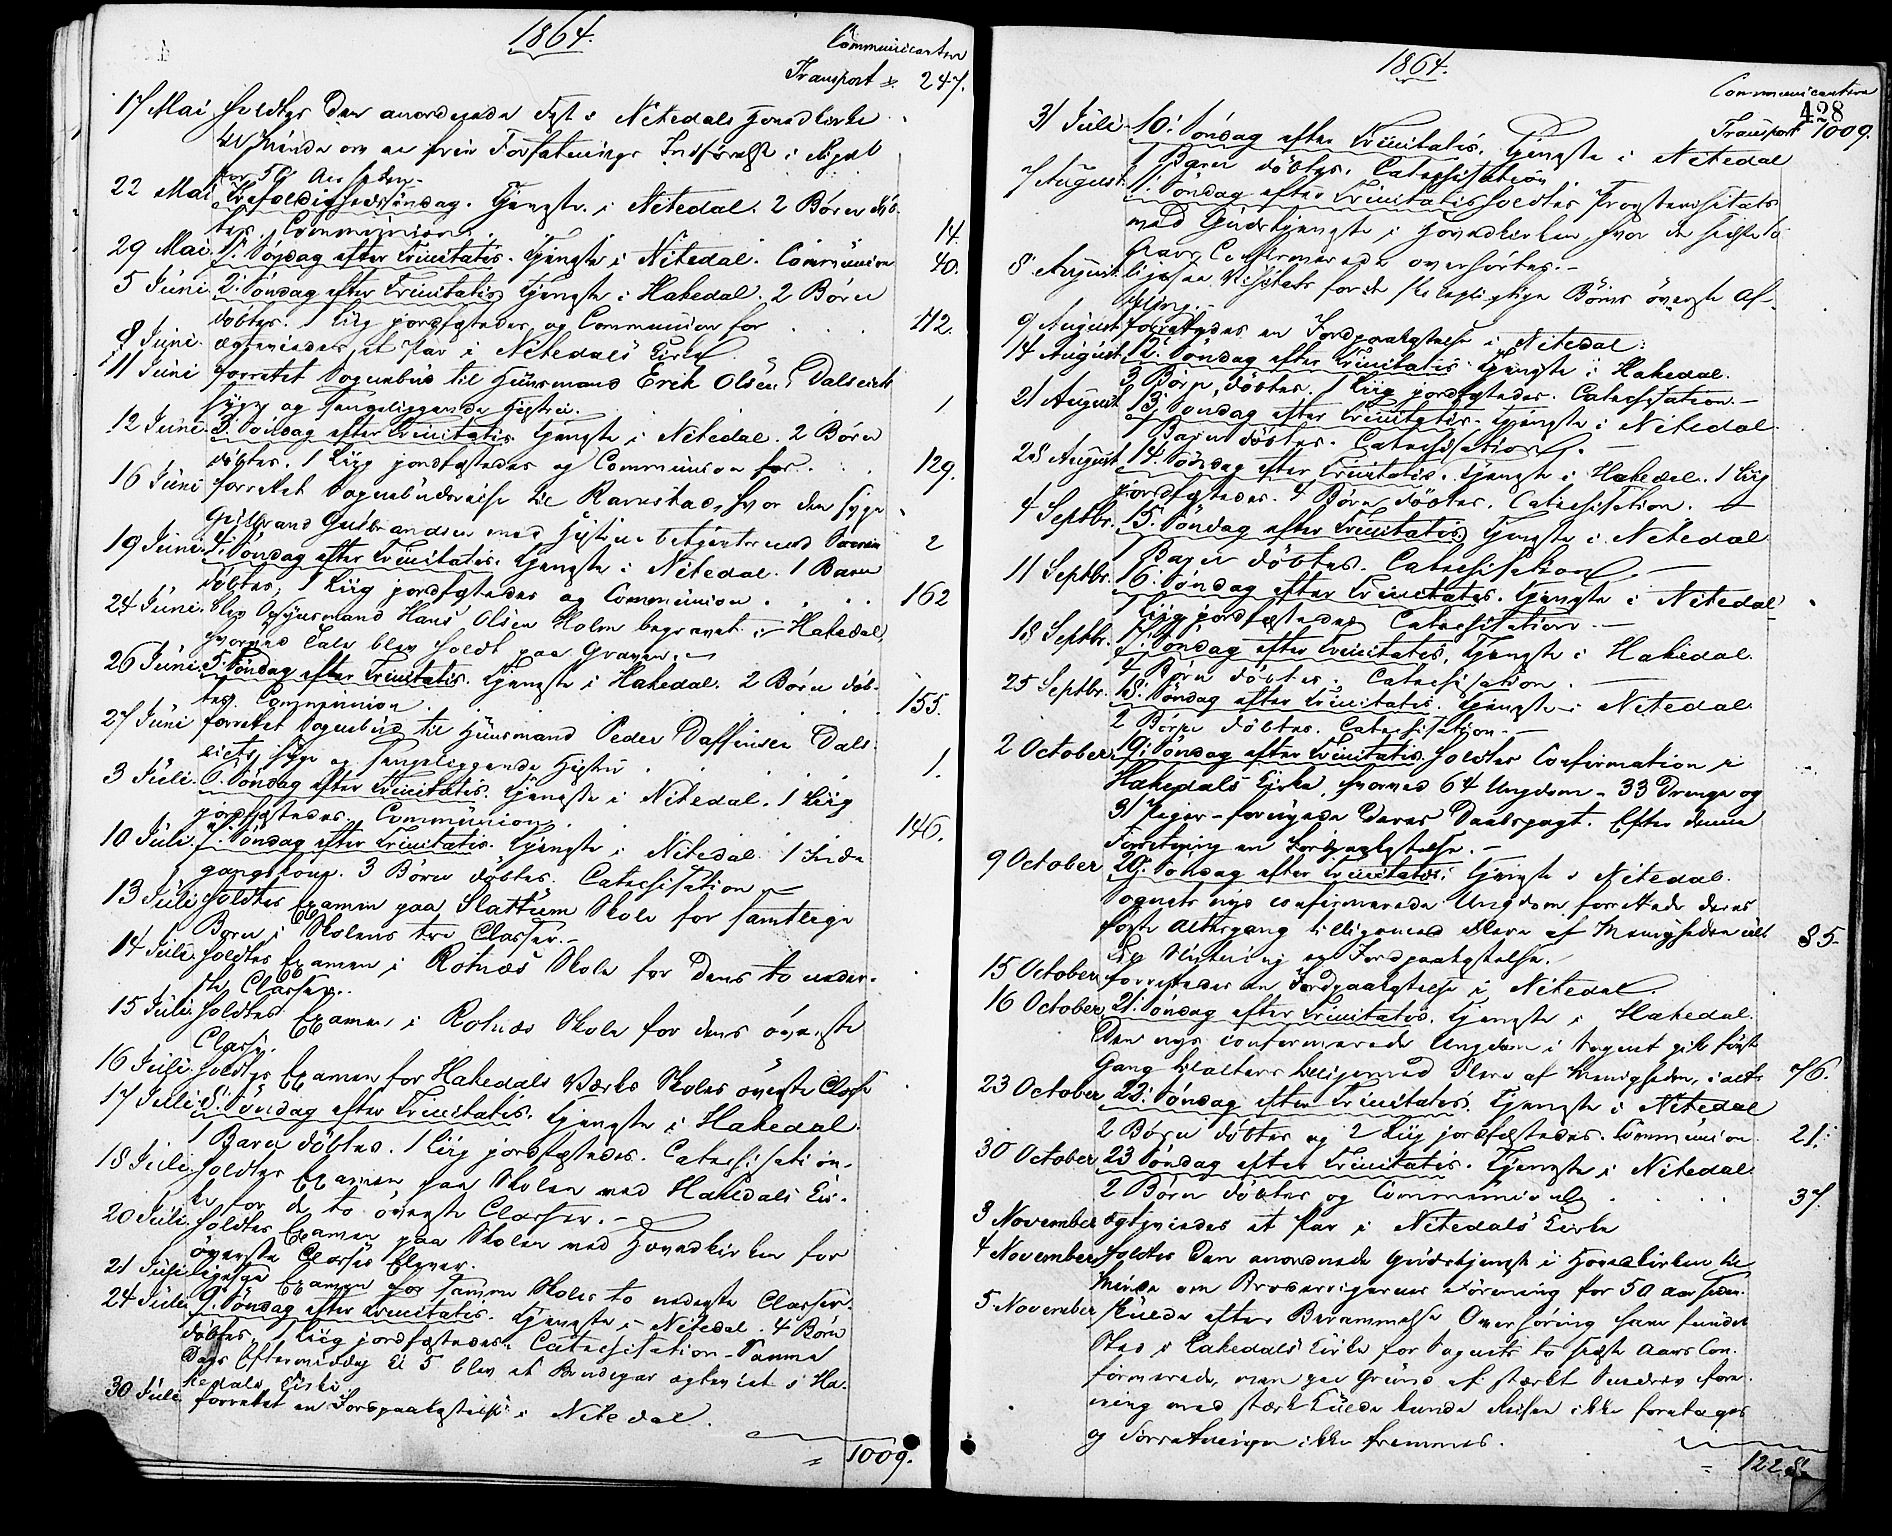 1864.
Communicantere
Transport 247.
17 Mai holdtes den anordnede Fest i Nitedals Hovedkirke
til Minde om en friere Forfatnings Indførelse i Riget
for 50 Aar siden.
22 Mai Trefoldighedssøndag. Tjeneste i Nitedal. 2 Børn døb-
tes. Communion. 14.
29 Mai 1. Søndag efter Trinitatis. Tjeneste i Nitedal. Communion 40.
5 Juni 2. Søndag efter Trinitatis. Tjeneste i Hakedal. 2 Børn
døbtes. 1 Liig jordfæstedes og Communion for 112.
8 Juni. ægteviedes et Par i Nitedals Kirke.
11 Juni forrettet Sognebud til Huusmand Erik Olsen Dalseiet
syge og sengeliggende Hustru. 1
12 Juni. 3. Søndag efter Trinitatis. Tjeneste i Nitedal. 2 Børn
døbtes. 1 Liig jordfæstedes og Communion for. 129.
16 Juni forrettet Sognebudsreise til Ravnstad, hvor den syge
Gulbrand Gulbrandsen med Hustru betjentes med Sacram 2
19 Juni 4. Søndag efter Trinitatis. Tjeneste i Nitedal. 1 Barn
døbtes, 1 Liig jordfæstedes og Communion 162
24 Juni. blev Opsynsmand Hans Olsen Holm begravet i Hakedal,
hvorved Tale blev holdt paa Graven.
26 Juni. 5. Søndag efter Trinitatis. Tjeneste i Hakedal. 2 Børn døb-
tes. Communion. 155.
27 Juni forrettet Sognebud til Huusmand Peder Daffinsen Dals-
eiets syge og sengeliggende Hustru 1.
3 Juli. 6. Søndag efter Trinitatis. Tjeneste i Nitedal. 1 Liig
jordfæstedes. Communion. 146.
10 Juli. 7. Søndag efter Trinitatis. Tjeneste i Nitedal. 1 Inde
gangskone. 3 Børn døbtes. Catechisation
13 Juli holdtes Examen paa Slattum Skole for samtlige
Børn i Skolens tre Classer.
14 Juli. holdtes Examen i Rotnæs Skole for dens to neder-
ste Classer.
15 Juli. holdtes Examen i Rotnæs Skole for dens øverste
Classe.
16 Juli holdtes Examen for Hakedals Værks Skoles øverste Classe
17 Juli 8. Søndag efter Trinitatis. Tjeneste i Hakedal.
1 Barn døbtes. 1 Liig jordfæstedes. Catechisation.
18 Juli holdtes Examen paa Skolen ved Hakedals Kir-
ke for de to øverste Classer.
20 Juli. holdtes Examen paa Skolen ved Hovedkirken for
øverste Classes Elever.
21 Juli ligesaa Examen for samme Skoles to nederste Classer.
24 Juli. 9. Søndag efter Trinitatis. Tjeneste i Nitedal. 4 Børn
døbtes. 1 Liig jordfæstedes. Catechisation. Samme
Dags Eftermiddag Kl 5 blev et Brudepar ægteviet i Ha-
kedals Kirke.
30 Juli forrettet en Jordpaakastelse i Nitedal.
= 1009.
1864.
Communicantere
428
Transport 1009.
31 Juli 10. Søndag efter Trinitatis. Tjeneste i Nitedal
1 Barn døbtes. Catechisation.
7 August. 11. Søndag efter Trinitatis holdtes Provstevisitats
med Gudstjeneste i Hovedkirken, hvor de sidste to
Aars Confirmerede overhørtes.
8 August. ligesaa Visitats for de skolepligtige Børns øverste Af-
deling.
9 August. forrettedes en Jordpaakastelse i Nitedal.
14 August. 12. Søndag efter Trinitatis. Tjeneste i Hakedal.
3 Børn døbtes, 1 Liig jordfæstedes. Catechisation.
21 August 13. Søndag efter Trinitatis. Tjeneste i Nitedal
1 Barn døbtes. Catechisation.
28 August 14. Søndag efter Trinitatis. Tjeneste i Hakedal. 1 Liig
jordfæstedes. 4 Børn døbtes. Catechisation.
4 Septbr. 15. Søndag efter Trinitatis. Tjeneste i Nitedal
1 Barn døbtes. Catechisation.
11 Septbr. 16. Søndag efter Trinitatis. Tjeneste i Nitedal
1 Liig jordfæstedes Catechisation.
18 Septbr. 17. Søndag efter Trinitatis. Tjeneste i Hakedal.
4 Børn døbtes. Catechisation.
25 Septbr. 18. Søndag efter Trinitatis. Tjeneste i Nitedal
2 Børn døbtes. Catechisation.
2 October. 19. Søndag efter Trinitatis holdtes Confirmation i
Hakedals Kirke, hvorved 64 Ungdom - 33 Drenge og
31 Piger - fornyede deres Daabspagt. Efter denne
Forretning en Jordpaakastelse.
9 October 20. Søndag efter Trinitatis. Tjeneste i Nitedal.
Sognets nys confirmerede Ungdom forrettede deres
første Altergang tilligemed Flere af Menigheden ialt 85.
Ep. Slutning en Jordpaakastelse.
15 October forrettedes en Jordpaakastelse i Nitedal.
16 October. 21. Søndag efter Trinitatis. Tjeneste i Hakedal.
Den nys confirmerede Ungdom i Sognet gik første
Gang til alters tilligemed Flere af Menigheden, i alt 76.
23 October 22. Søndag efter Trinitatis. Tjeneste i Nitedal
2 Børn døbtes og 2 Liig jordfæstedes. Communion. 21.
30 October 23 Søndag efter Trinitatis. Tjeneste i Nitedal
2 Børn døbtes og Communion 37.
3 November ægteviedes et Par i Nitedals Kirke
4 November holdtes den anordnede Gudstjeneste i Hovedkirken til
Minde om Broderrigernes Forening for 50 Aar siden.
5 November skulde efter Berammelse Overhøring have fundet
Sted i Hakedals Kirke for Sognets to sidste Aars Con-
firmerede, men paa Grund af stærkt Sneedrev fore-
ning med stærk Kulde kunde Reisen ikke foretages
og Forretningen ikke fremmes.
= 1228.